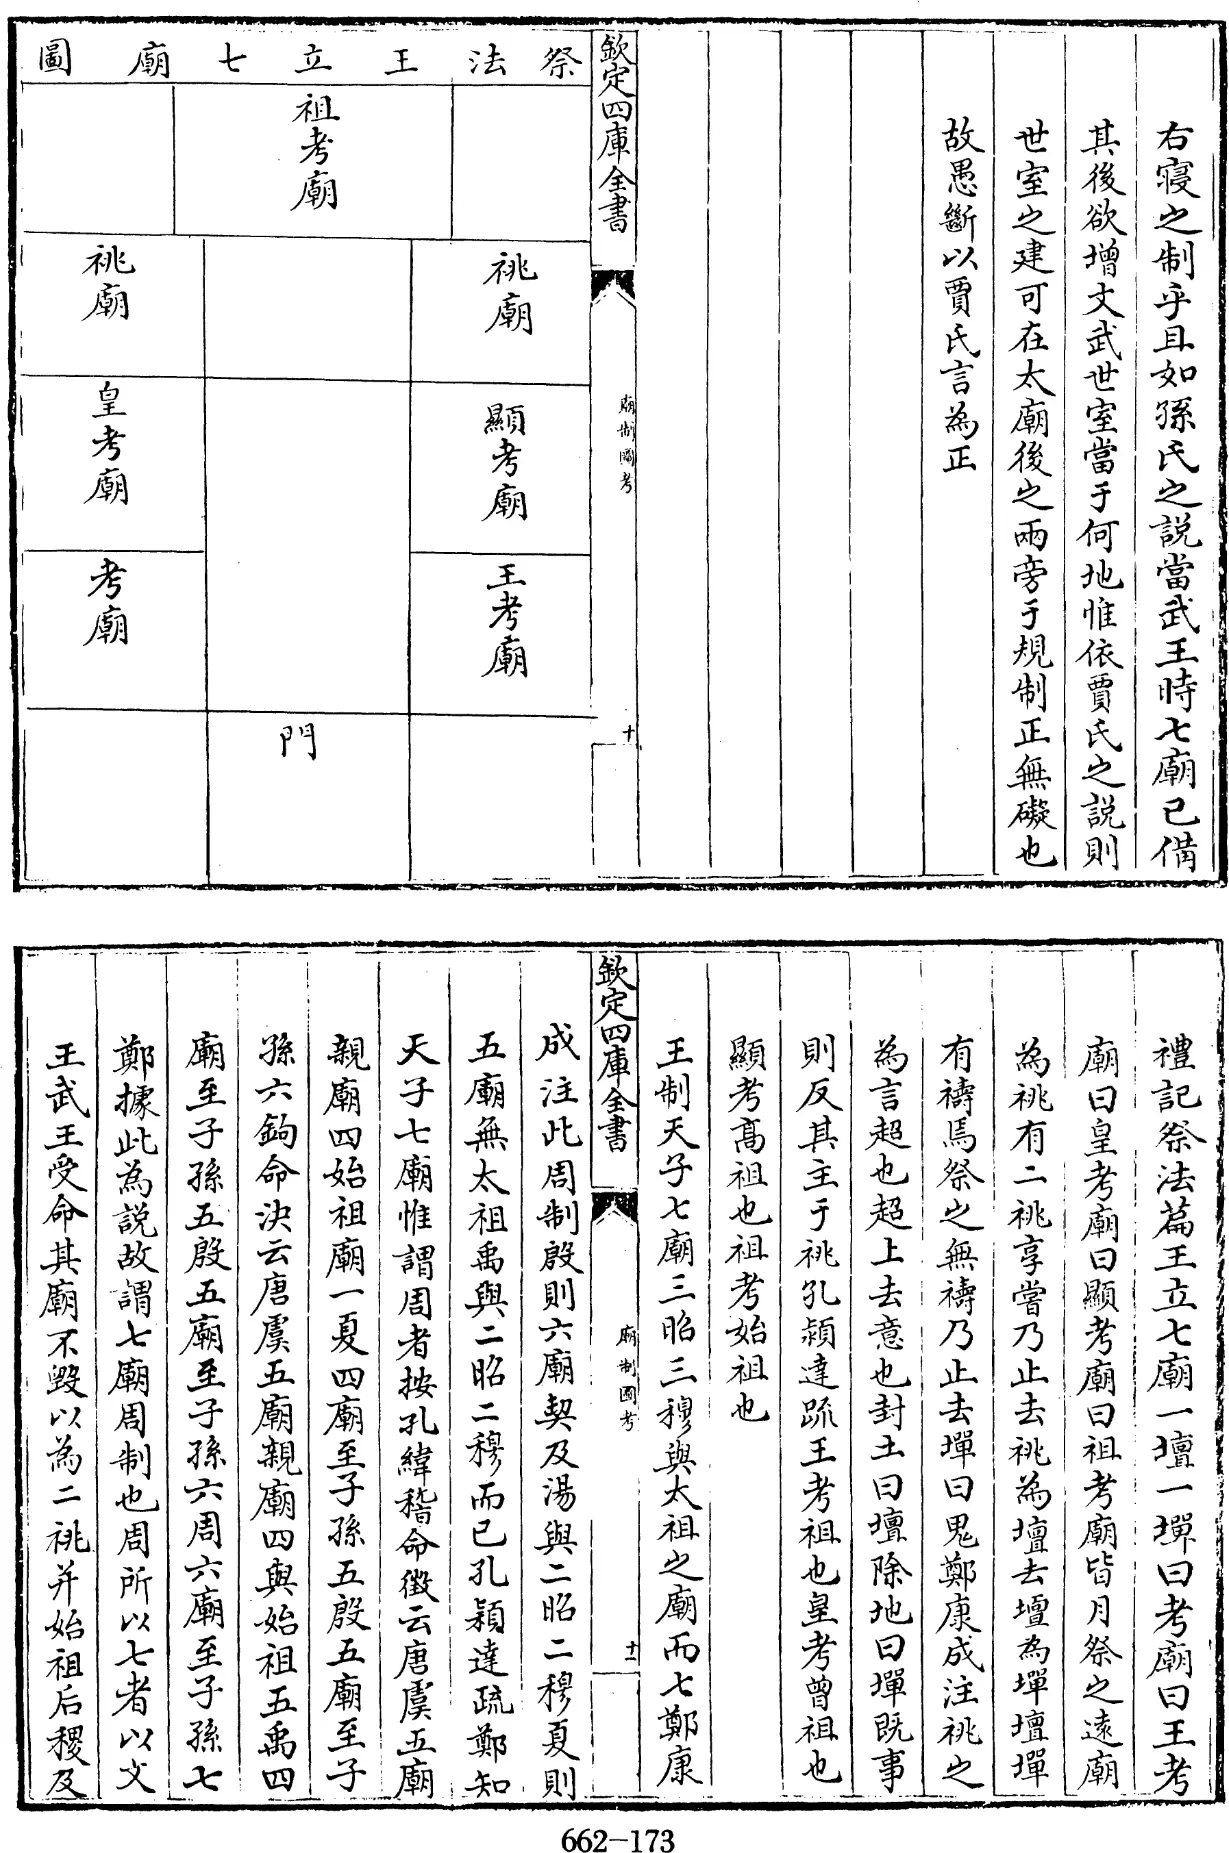 右寢之制乎且如孫氏之説當武王時七廟已備
其後欲增文武世室當于何地惟依賈氏之説則
世室之建可在太廟後之兩旁于規制正無礙也
故愚斷以賈氏言為正
欽定四庫全書
廟制圖考
十
祭法王立七廟圖
祖考廟
祧廟
祧廟
顯考廟
皇考廟
王考廟
考廟
門
禮記祭法篇王立七廟一壇一墠曰考廟曰王考
廟曰皇考廟曰顯考廟曰祖考廟皆月祭之遠廟
為祧有二祧享嘗乃止去祧為壇去壇為墠壇墠
有禱焉祭之無禱乃止去墠曰鬼鄭康成注祧之
為言超也超上去意也封土曰壇除地曰墠既事
則反其主于祧孔穎達疏王考祖也皇考曾祖也
顯考高祖也祖考始祖也
王制天子七廟三昭三穆與太祖之廟而七鄭康
欽定四庫全書
廟制圖考
十一
成注此周制殷則六廟契及湯與二昭二穆夏則
五廟無太祖禹與二昭二穆而已孔穎達疏鄭知
天子七廟惟謂周者按孔緯稽命徵云唐虞五廟
親廟四始祖廟一夏四廟至子孫五殷五廟至子
孫六鉤命決云唐虞五廟親廟四與始祖五禹四
廟至子孫五殷五廟至子孫六周六廟至子孫七
鄭據此為説故謂七廟周制也周所以七者以文
王武王受命其廟不毀以為二祧并始祖后稷及
662-173